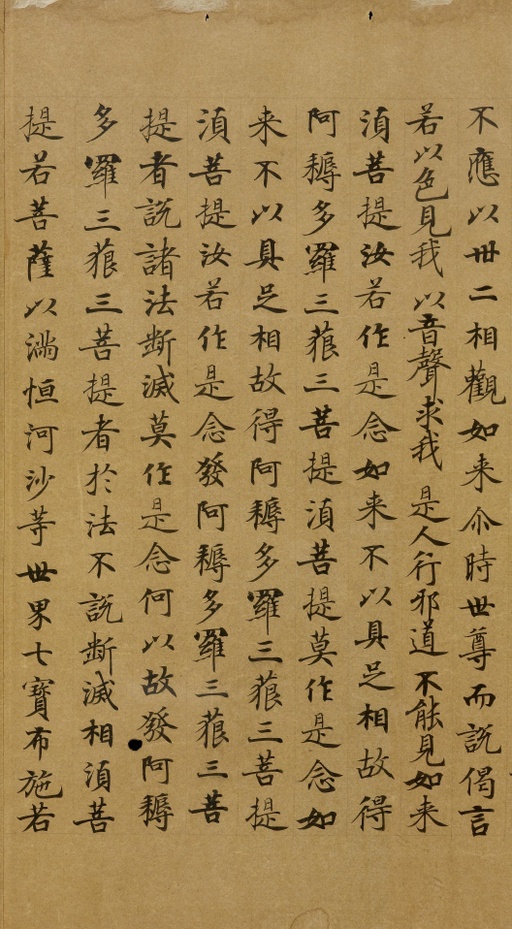 不應以卅二相觀如来尒時世尊而說偈言
若以色見我以音聲求我是人行邪道不能見如来
湏菩提汝若作是念如来不以具足相故得
阿耨多羅三藐三菩提湏菩提莫作是念如
来不以具足相故得阿耨多羅三藐三菩提
湏菩提汝若作是念發阿耨多羅三藐三菩
提者說諸法断滅莫作是念何以故發阿耨
多羅三藐三菩提者於法不說断滅相湏菩
提若菩薩以滿恒河沙等世界七寶布施若